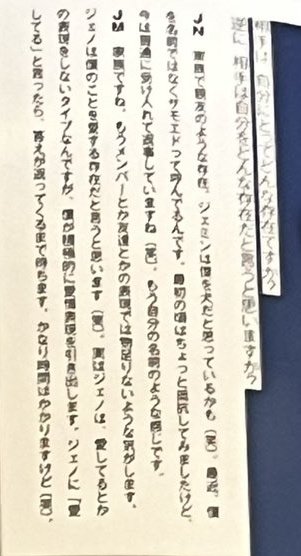 相手は、自分にとってどんな存在ですか？
逆に、相手は自分をどんな存在だと言うと思いますか？
JN 家族で親友のような存在。ジェミンは僕を犬だと思っているかも（笑）。最近、僕
を名前ではなくサモエドって呼んでるんです。最初の頃はちょっと抵抗してみましたけど、
今は普通に受け入れて返事していますね（笑）。もう自分の名前のような感じです。
JM 家族ですね。もうメンバーとか友達とかの表現では物足りないような気がします。
ジェノは僕のことを愛する存在だと言うと思います（笑）。実はジェノは、愛してるとか
の表現をしないタイプなんですが、僕が積極的に愛情表現を引き出します。ジェノに「愛
してる」と言ったら、答えが返ってくるまで待ちます。かなり時間はかかりますけど（笑）。